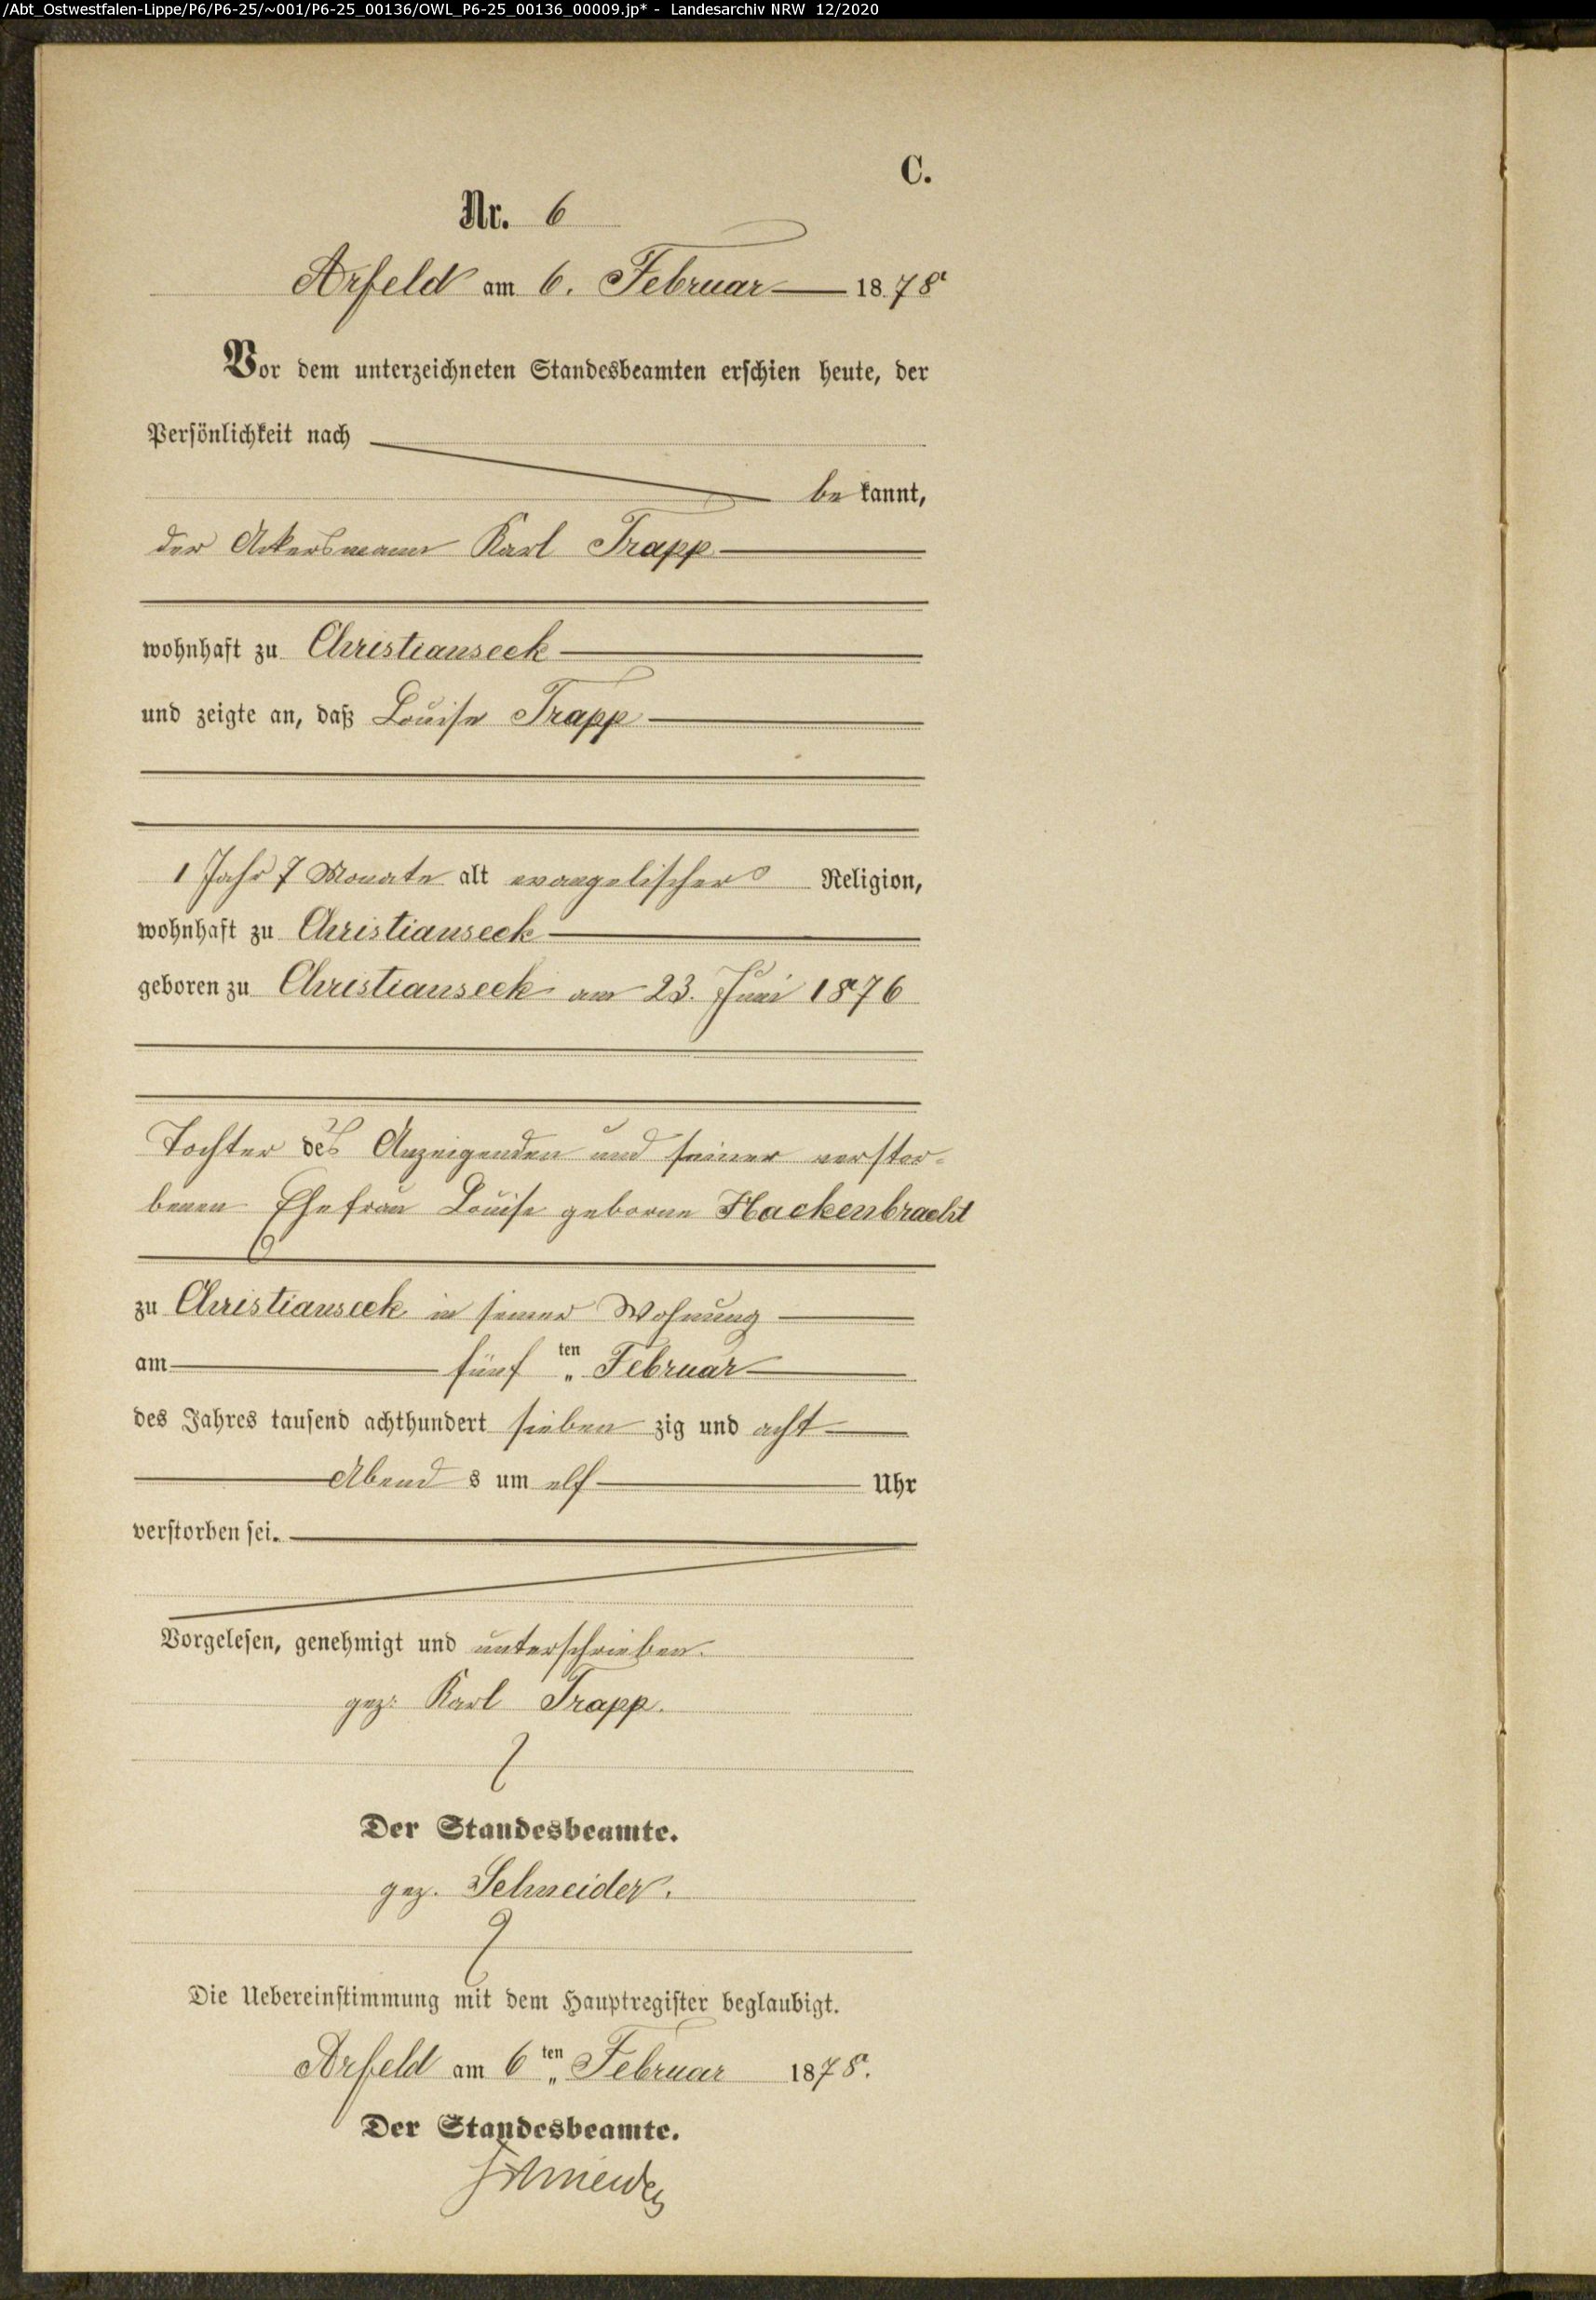 /Abt_Ostwestfalen-Lippe/P6/P6-25/~001/P6-25_00136/OWL_P6-25_00136_00009.jp* - Landesarchiv NRW 12/2020
C.
Nr. 6
Arfeld am 6. Februar 1878
Vor dem unterzeichneten Standesbeamten erschien heute, der
Persönlichkeit nach
be kannt,
der Ackersmann Karl Trapp
wohnhaft zu Christianseck
und zeigte an, daß Louise Trapp
1 Jahr 7 Monate alt evangelischer Religion,
wohnhaft zu Christianseck
geboren zu Christianseck am 23. Juni 1876
Tochter des Anzeigenden und seiner verstor-
benen Ehefrau Louise geborne Hackenbracht
zu Christianseck in seiner Wohnung
am fünf ten Februar
des Jahres tausend achthundert sieben zig und acht
Abend s um elf Uhr
verstorben sei.
Vorgelesen, genehmigt und unterschrieben.
gez. Karl Trapp.
Der Standesbeamte.
gez. Schneider.
Die Uebereinstimmung mit dem Hauptregister beglaubigt.
Arfeld am 6 ten Februar 1878.
Der Standesbeamte.
Schneider